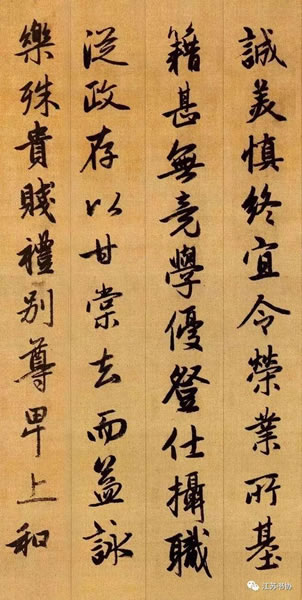 誠美慎終宜令榮業所基
籍甚無竟學優登仕攝職
從政存以甘棠去而益詠
樂殊貴賤禮別尊卑上和
江苏书协